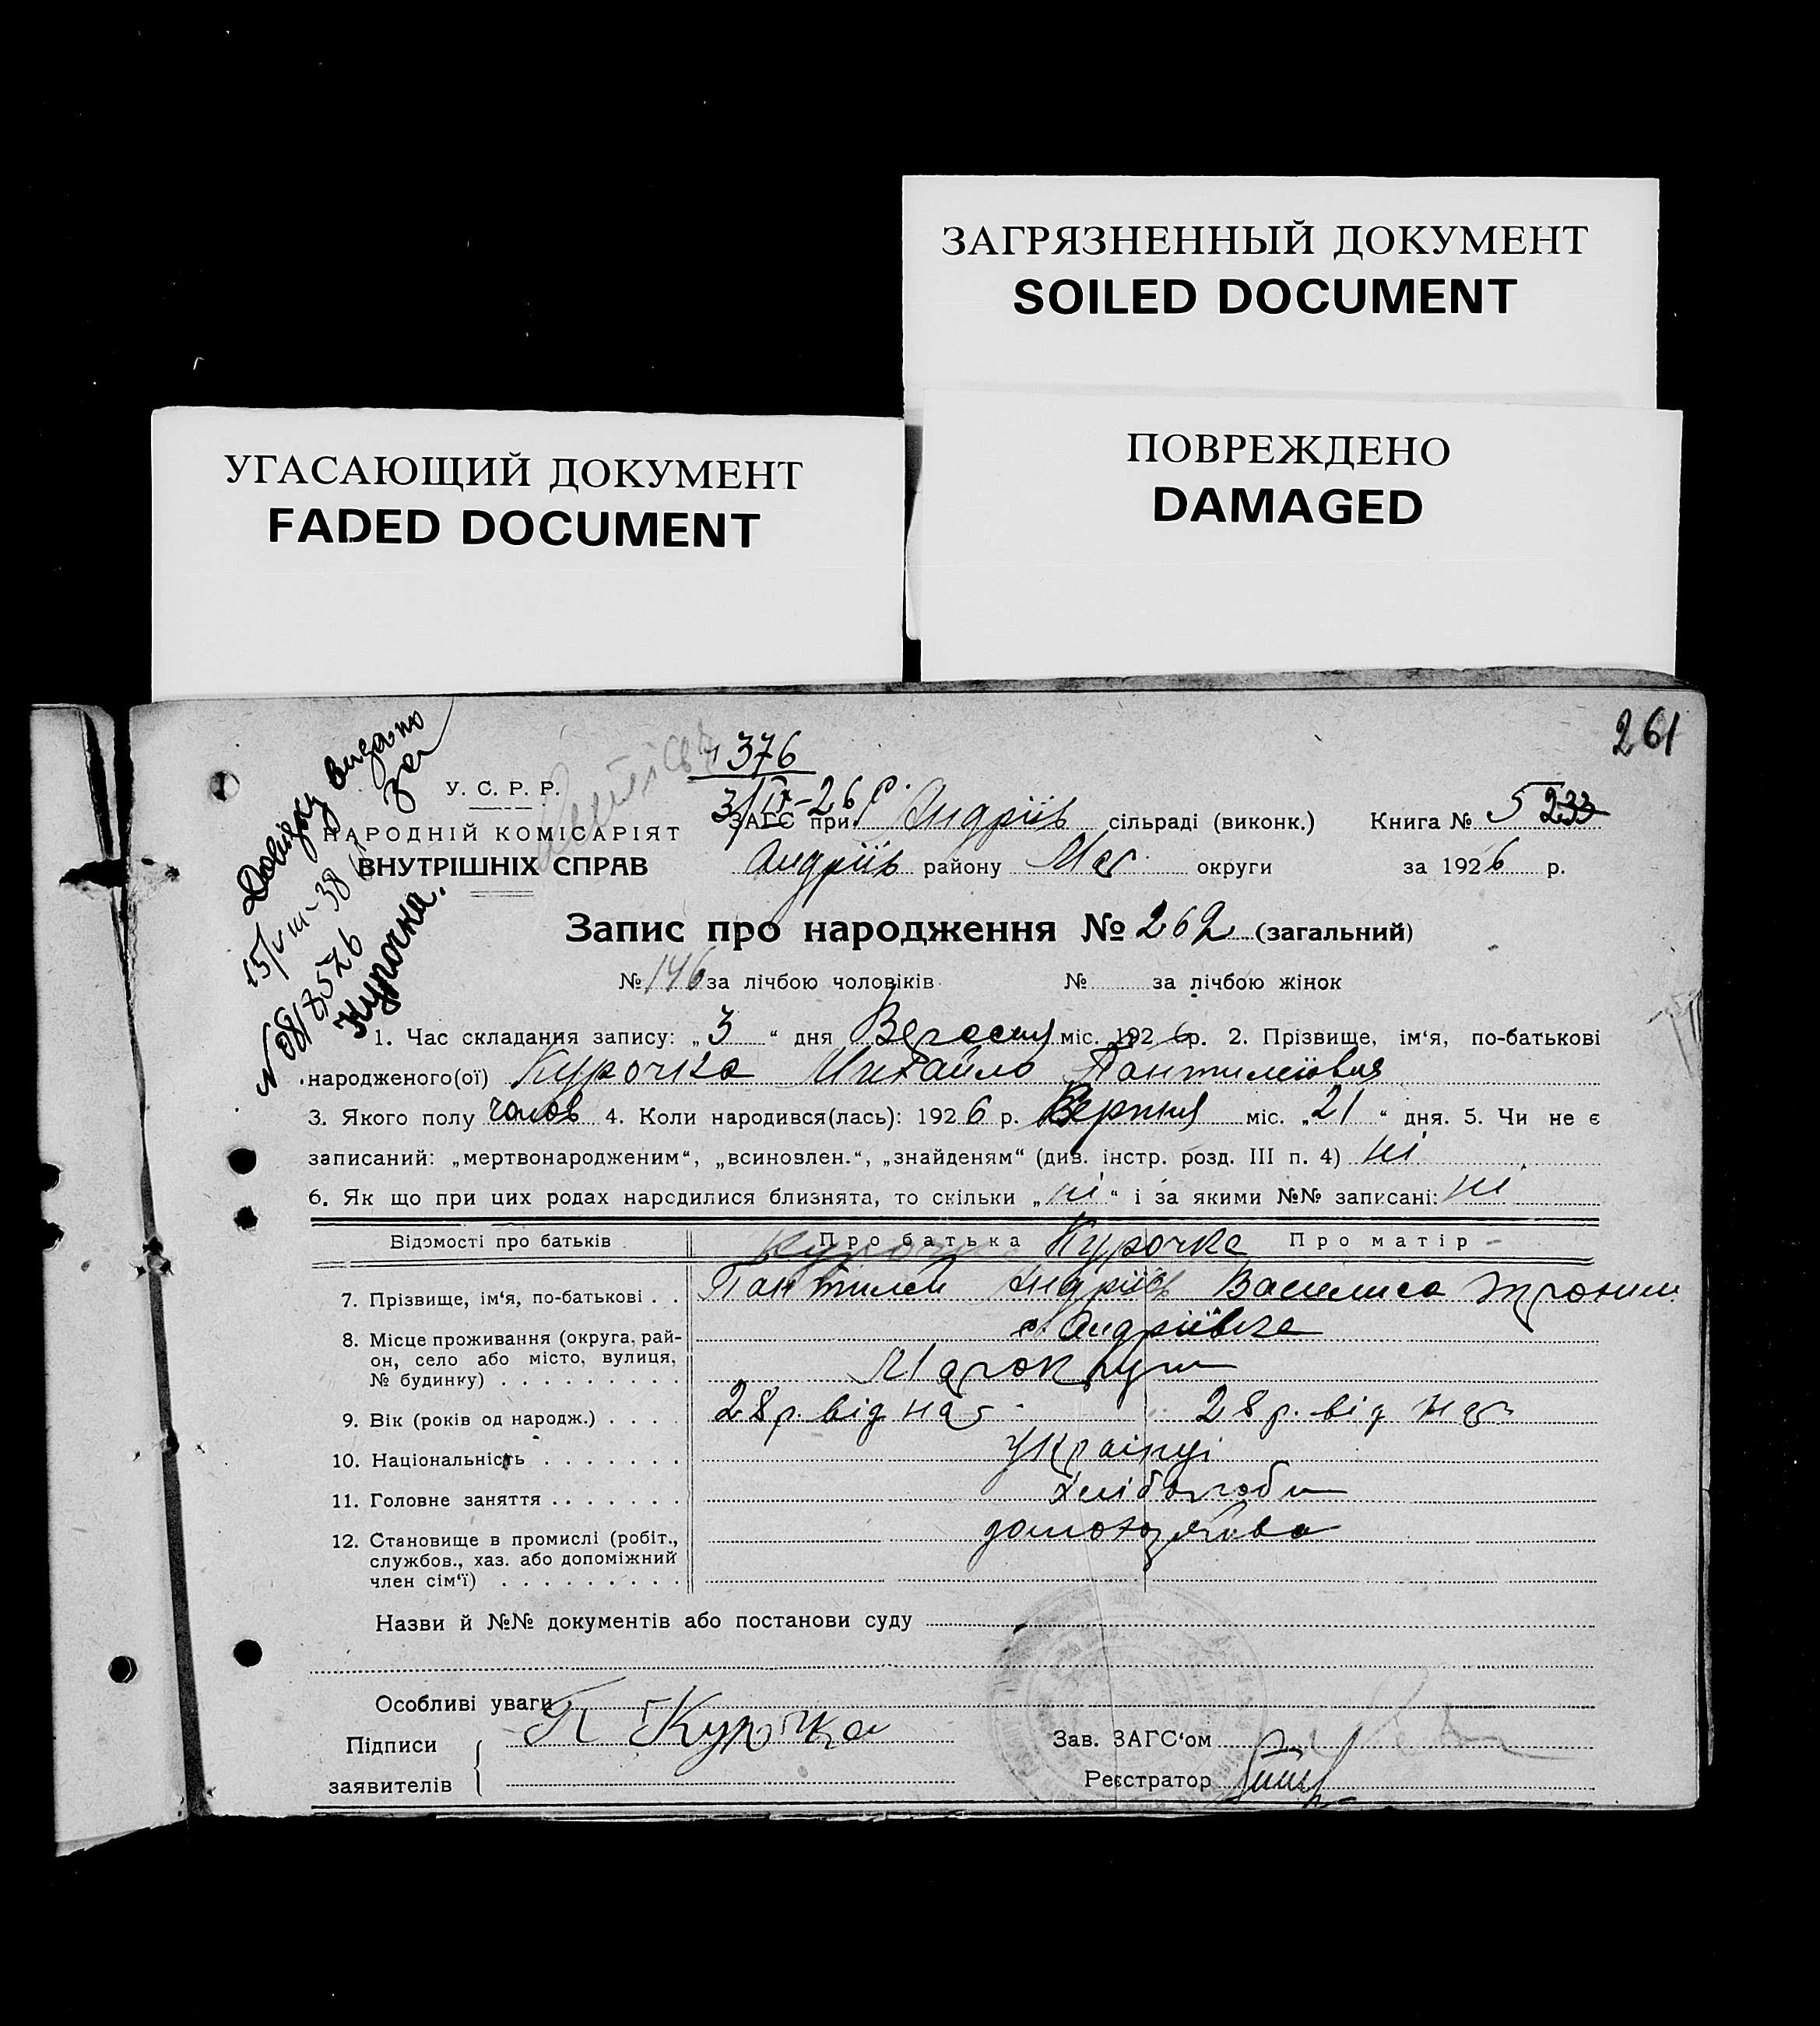 ЗАГРЯЗНЕННЫЙ ДОКУМЕНТ
SOILED DOCUMENT
УГАСАЮЩИЙ ДОКУМЕНТ
FADED DOCUMENT
ПОВРЕЖДЕНО
DAMAGED
261
Довідку видано за
15/VIII-38
Курочка.
376
3/IX-26 р.
У. С. Р. Р.
НАРОДНІЙ КОМІСАРІЯТ
ВНУТРІШНІХ СПРАВ
ЗАГС при Андріїв сільраді (виконк.) Книга № 5 233
Андріїв району Маг округи за 1926 р.
Запис про народження № 262 (загальний)
№ 146 за лічбою чоловіків № за лічбою жінок
1. Час складання запису: „3“ дня Вересня міс. 1926 р. 2. Прізвище, ім‘я, по-батькові
народженого(ої) Курочка Михайло
3. Якого полу чолов 4. Коли народився(лась): 1926 р. Серпня міс. „21“ дня. 5. Чи не є
записаний: „мертвонародженим“, „всиновлен.“, „знайденям“ (див. інстр. розд. III п. 4) ні
6. Як що при цих родах народилися близнята, то скільки „ні“ і за якими №№ записані: ні
Відомості про батьків Про батька Курочка Про матір
7. Прізвище, ім‘я, по-батькові . . Пантилей Андріїв Василиса
8. Місце проживання (округа, рай- с. Андріївка
он, село або місто, вулиця,
№ будинку) . . . . . . . . .
9. Вік (років од народж.) . . . . 28 р. від нар 28 р. від нар
10. Національність . . . . . . . Українці
11. Головне заняття . . . . . . . Хлібороби
12. Становище в промислі (робіт.,
службов., хаз. або допоміжний
член сім‘ї) . . . . . . . . .
Назви й №№ документів або постанови суду
Особливі уваги
Підписи П Курочка Зав. ЗАГС‘ом
заявителів Реєстратор